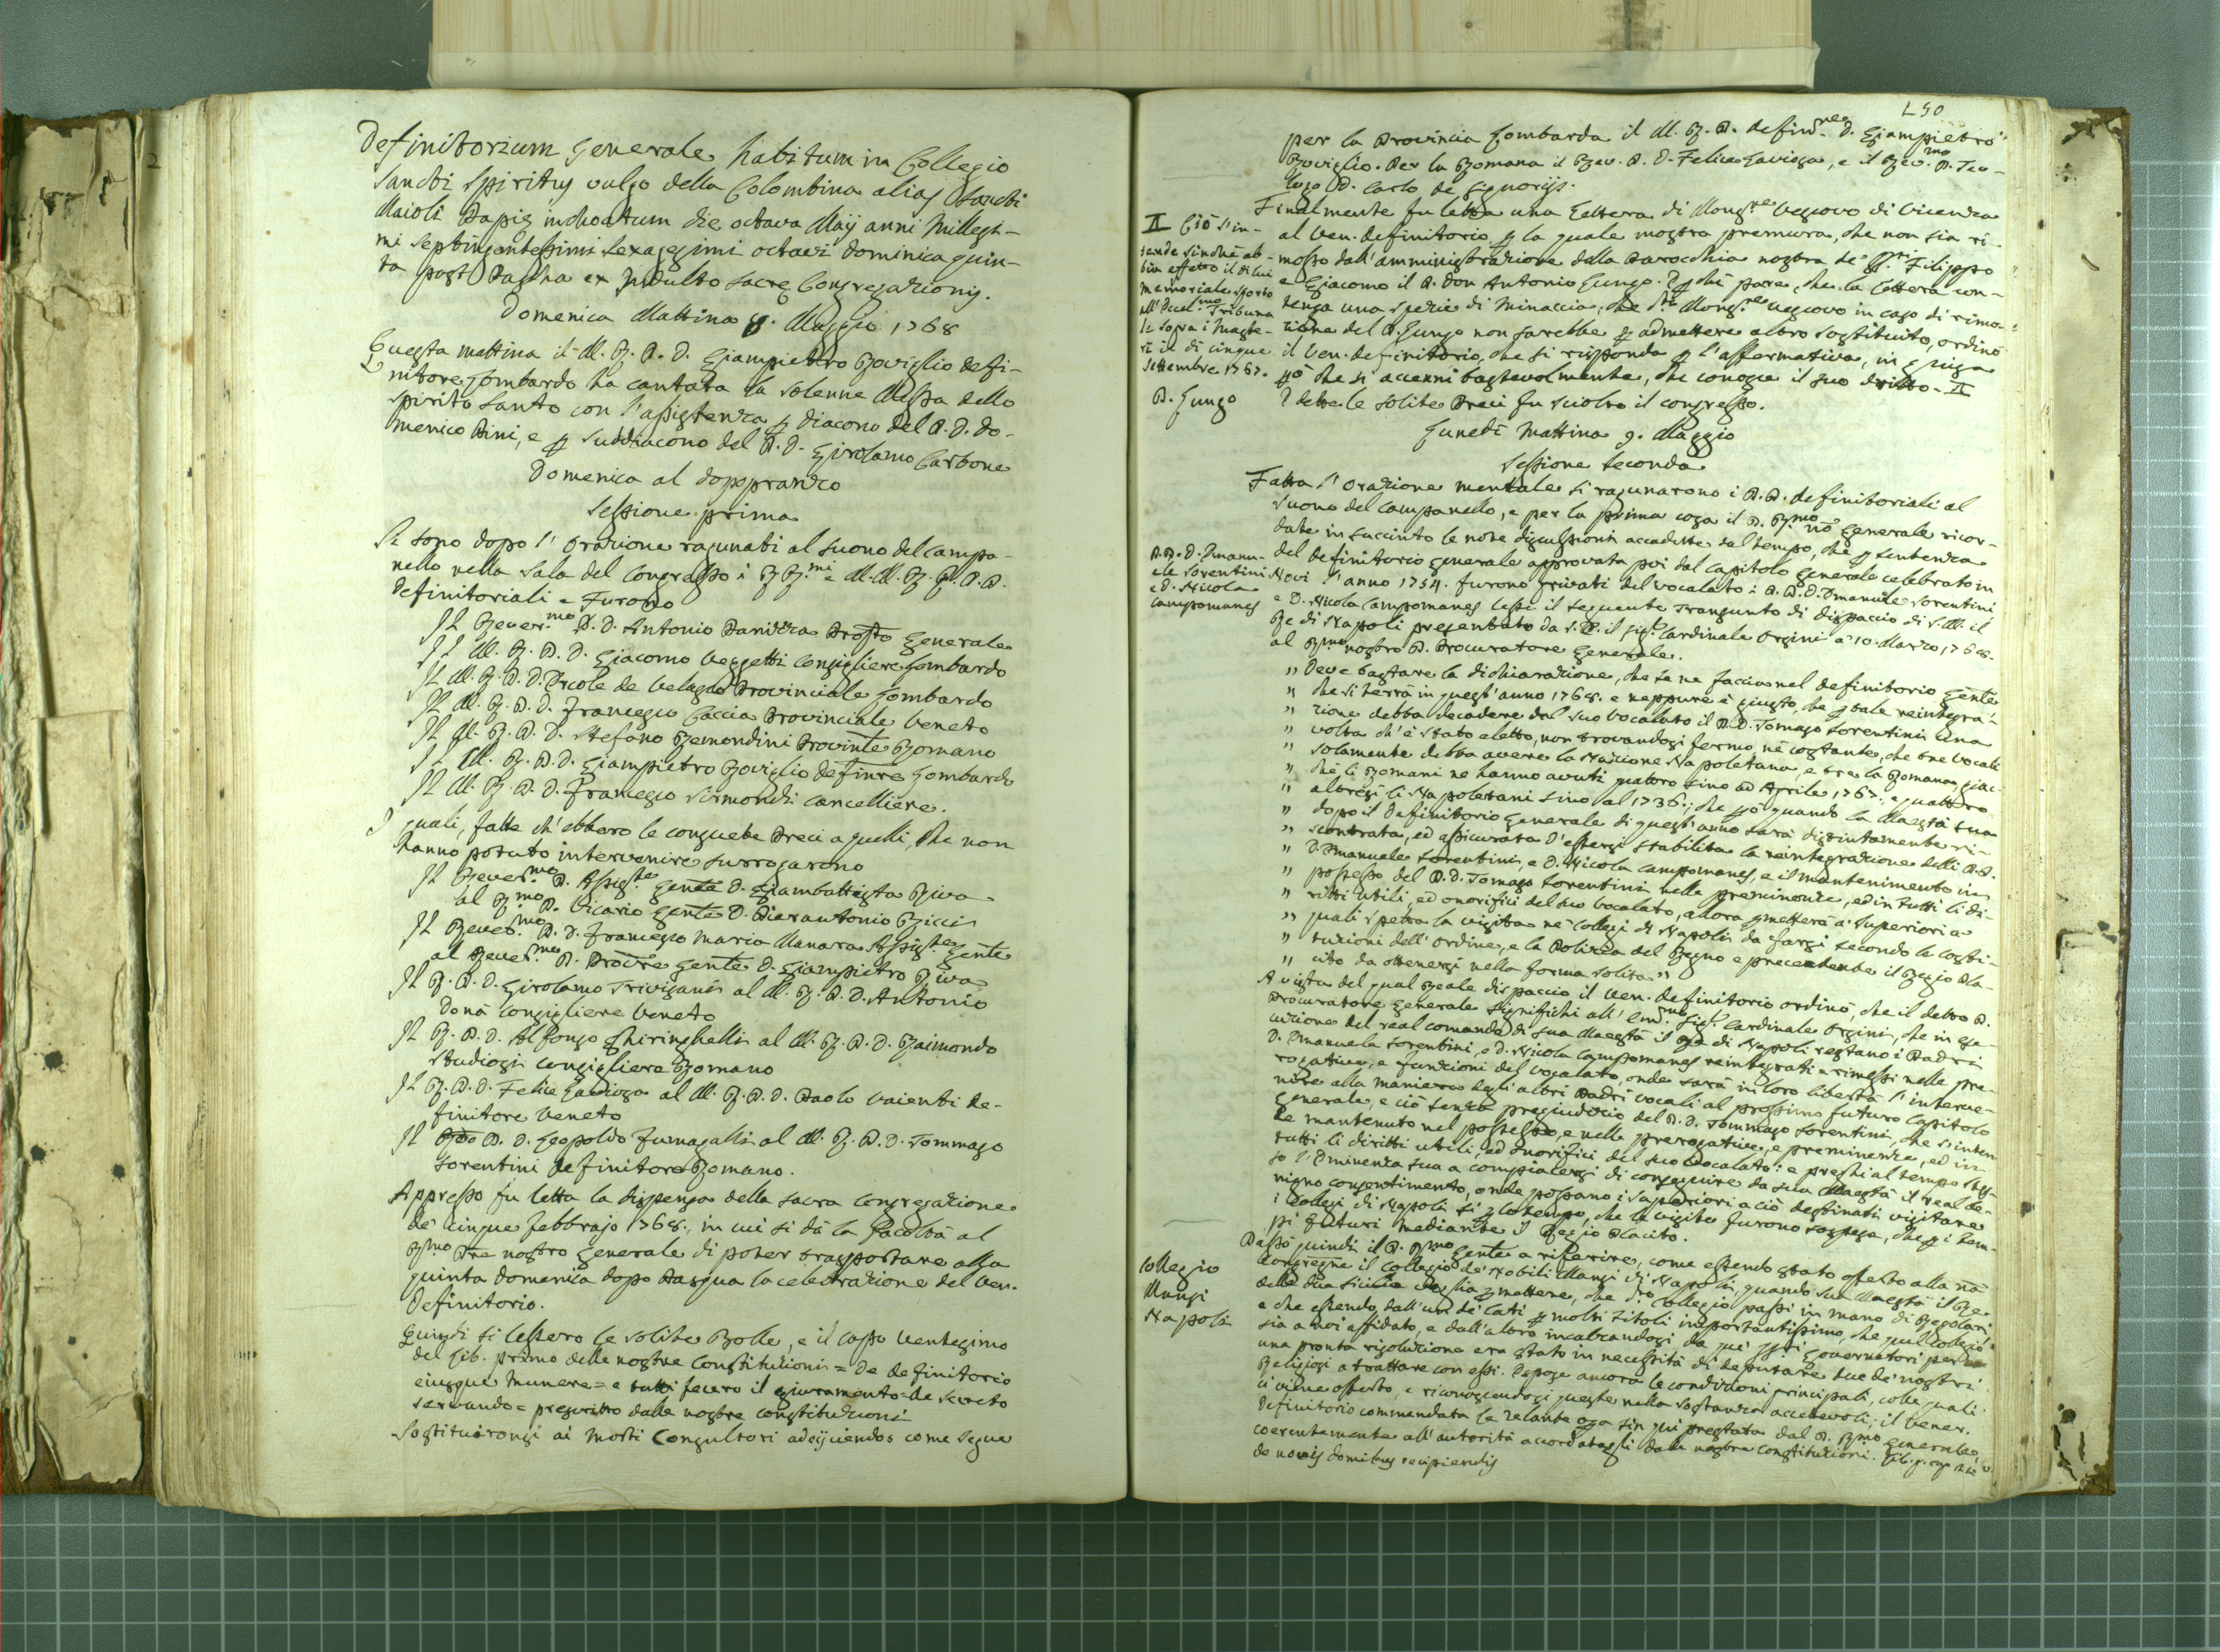 Definitorium Generale habitum in Collegio
Sancti Spiritus vulgo della Colombina alias Sancti
Maioli Papię inchoatum die octava Maij anni Millesi-
mi septingentesimi sexagesimi octavi Dominica quin-
ta post Pascha ex Indulto Sacrę Congregationis.
Domenica Mattina 8. Maggio 1768
Questa mattina il M. R. P. D. Giampietro Roviglio defi-
nitore Lombardo ha cantata la solenne Messa dello
Spirito Santo con l'assistenza p diacono del P. D. Do-
menico Pini, e p suddiacono del P. D. Girolamo Carbone
Domenica al dopopranzo
Sessione prima
Si sono dopo l'Orazione ragunati al suono del campa-
nello nella sala del Congresso i RR.mi e M.M. R.R. P.P.
Definitoriali e Furono
Il Rever.mo P. D. Antonio Prosto Generale
Il M. R. P. D. Giacomo Veggetti Consigliere Lombardo
Il M. R. P. D. Ercole de Velasco Provinciale Lombardo
Il M. R. P. D. Francesco Caccia Provinciale Veneto
Il M. R. P. D. Stefano Remondini Provinle Romano
Il M. R. P. D. Giampietro Roviglio Definre Lombardo
Il M. R. P. D. Francesco Sirmondi Cancelliere.
I quali, fatte ch'ebbero le consuete Preci a quelli, che non
hanno potuto intervenire surrogarono
Il Rever.mo P. Assis.te Gente D. Giambattista Riva
al R.mo P. Vicario Gente D. Pierantonio Ricci
Il Rever.mo P. D. Francesco Maria Manara Assis.te Gente
al Rever.mo P. Procre Gente D. Giampietro Riva
Il R. P. D. Girolamo Trivisani al M. R. P. D. Antonio
Donà Consigliere Veneto
Il R. P. D. Alfonso Ghiringhelli al M. R. P. D. Raimondo
Studiosi Consigliere Romano
Il R. P. D. Felice Lavizza al M. R. P. D. Paolo Vaienti de-
finitore Veneto
Il P. D. Leopoldo Fumagalli al M. R. P. D. Tommaso
Sorentini definitore Romano.
Appresso fu letta la dispensa della Sacra Congregazione
de' cinque Febbrajo 1768., in cui si dà la Facoltà al
R.mo Pre nostro Generale di poter trasportare alla
quinta Domenica dopo Pasqua la celebrazione del Ven.
Definitorio.
Quindi si lessero le solite Bolle, e il capo Ventesimo
del Lib. primo delle nostre Constituzioni = De definitorio
eiusque munere = e tutti fecero il giuramento = de secreto
servando = prescritto dalle nostre constituzioni
Sostituironsi ai Morti Consultori adeijciendos come segue
L50
per la Provincia Lombarda il M. R. P. definre D. Giampietro
Roviglio. Per la Romana il Rev. P. D. Felice Lavizza, e il Rev.mo P. Teo-
logo D. Carlo de Signorijs.
Finalmente fu letta una Lettera di Mons.re Vescovo di Vicenza
al Ven. definitorio p la quale mostra premura, che non sia ri-
mosso dall'amministrazione della Parocchia nostra de' SS. Filippo
e Giacomo il P. Don Antonio Lungo. E p chè pare, che la lettera con-
tenga una spezie di Minaccia, che Mons.re Vescovo in caso di rimo-
zione del P. Lungo non sarebbe p admettere altro sostituto, ordinò
il Ven. definitorio, che si risponda p l'affermativa, in guisa
pò che si accenni bastevolmente, che conosce il suo dritto. II
E dette le solite Preci fu sciolto il congresso.
II Ciò s'in-
tende sinchè ab-
bia effetto il di lui
memoriale sporto
all'Eccel.mo Tribuna
le sopra i Maste-
ri il dì cinque
settembre 1767.
P. Lungo
Lunedì Mattina 9. Maggio
Sessione seconda
Fatta l'Orazione mentale si ragunarono i P.P. definitoriali al
suono del campanello, e per la prima cosa il P. R.mo nro Generale ricor-
date in succinto le note discussioni accadette dal tempo, che p sentenza
del definitorio generale approvata poi dal Capitolo Generale celebrato in
Novi l'anno 1754. furono privati del vocalato i P.P. D. Emanuele Sorentini
e D. Nicola Campomanes lesse il seguente Transunto di dispaccio di S. M. il
Re di Napoli presentato da S. E. il Sig. Cardinale Orsini a' 10. Marzo 1768.
al R.mo nostro P. Procuratore Generale.
P.P. D. Emanu-
ele Sorentini
e D. Nicola
Campomanes
" Deve bastare la dichiarazione, che se ne faccia nel definitorio Gente
" che si terrà in quest'anno 1768. e neppure è giusto, che p tale reintegra-
" zione debba decadere dal suo vocalato il P. D. Tomaso Sorentini una
" volta ch'è stato eletto, non trovandosi fermo, nè costante, che tre vocali
" solamente debba avere la Nazione Napoletana, e tre la Romana, giac-
" chè li Romani ne hanno avuti quattro sino ad Aprile 1767. e quattro
" altresì li Napoletani sino al 1736.; che pò quando la Maestà Sua
" dopo il Definitorio Generale di quest'anno sarà distintamente ri-
" scontrata, ed assicurata d'essersi stabilita la reintegrazione delli P.P.
" D. Emanuele Sorentini, e D. Nicola Campomanes, e il mantenimento in
" possesso del P. D. Tomaso Sorentini nelle preminenze, ed in tutti li di-
" ritti utili, ed onorifici del suo vocalato, allora pmetterà a' Superiori a
" quali spetta la visita ne' Collegi di Napoli da farsi secondo le costi-
" tuzioni dell'Ordine, e la Polizia del Regno e precedente il Regio Pla-
" cito da ottenersi nella forma solita "
A vista del qual Reale dispaccio il Ven. definitorio ordinò, che il detto P.
Procuratore Generale significhi all'Em.mo Sig. Cardinale Orsini, che in ese-
cuzione del real comando di sua Maestà il Re di Napoli restano i Padri
D. Emanuele Sorentini, e D. Nicola Campomanes reintegrati e rimessi nelle pre-
rogative, e funzioni del vocalato, onde sarà in loro libertà l'interve-
nire alla maniera degli altri Padri vocali al prossimo futuro Capitolo
generale, e ciò senza pregiudizio del P. D. Tommaso Sorentini, che s'inten-
de mantenuto nel possesso, e nelle prerogative, e preminenze, ed in
tutti li diritti utili, ed Onorifici del suo Vocalato: e preghi al tempo stes-
so l'Eminenza sua a compiacersi di conseguire da sua Maestà il real be-
nigno consentimento, onde possano i Superiori a ciò destinati visitare
i Collegi di Napoli sì p lo tempo, che le visite furono sospese, che p i tem-
pi futuri mediante il Regio Placito.
Passò quindi il P. R.mo Gente a riferire, come essendo stato offerto alla nra
Congregne il Collegio de' Nobili Mansi di Napoli, quando sua Maestà il Re
delle due Sicilie voglia pmettere, che dto Collegio passi in mano di Regolari,
e che essendo, dall'un de' lati p molti titoli importantissimo, che quel Collegio
sia a noi affidato, e dall'altro incalzandosi da que' SSri Governatori per
una pronta risoluzione era stato in necessità di deputare due de' nostri
Religiosi a trattare con essi. Espose ancora le condizioni principali, colle quali
ci viene offerto, e riconoscendosi queste nella sostanza accettevoli, il Vener.
Definitorio commendata la zelante opa sin qui prestata dal P. R.mo Generale
coerentemente all'autorità accordatagli dalle nostre constituzioni. Lib. p. cap.
de novis domibus recipiendis
Collegio
Mansi
Napoli